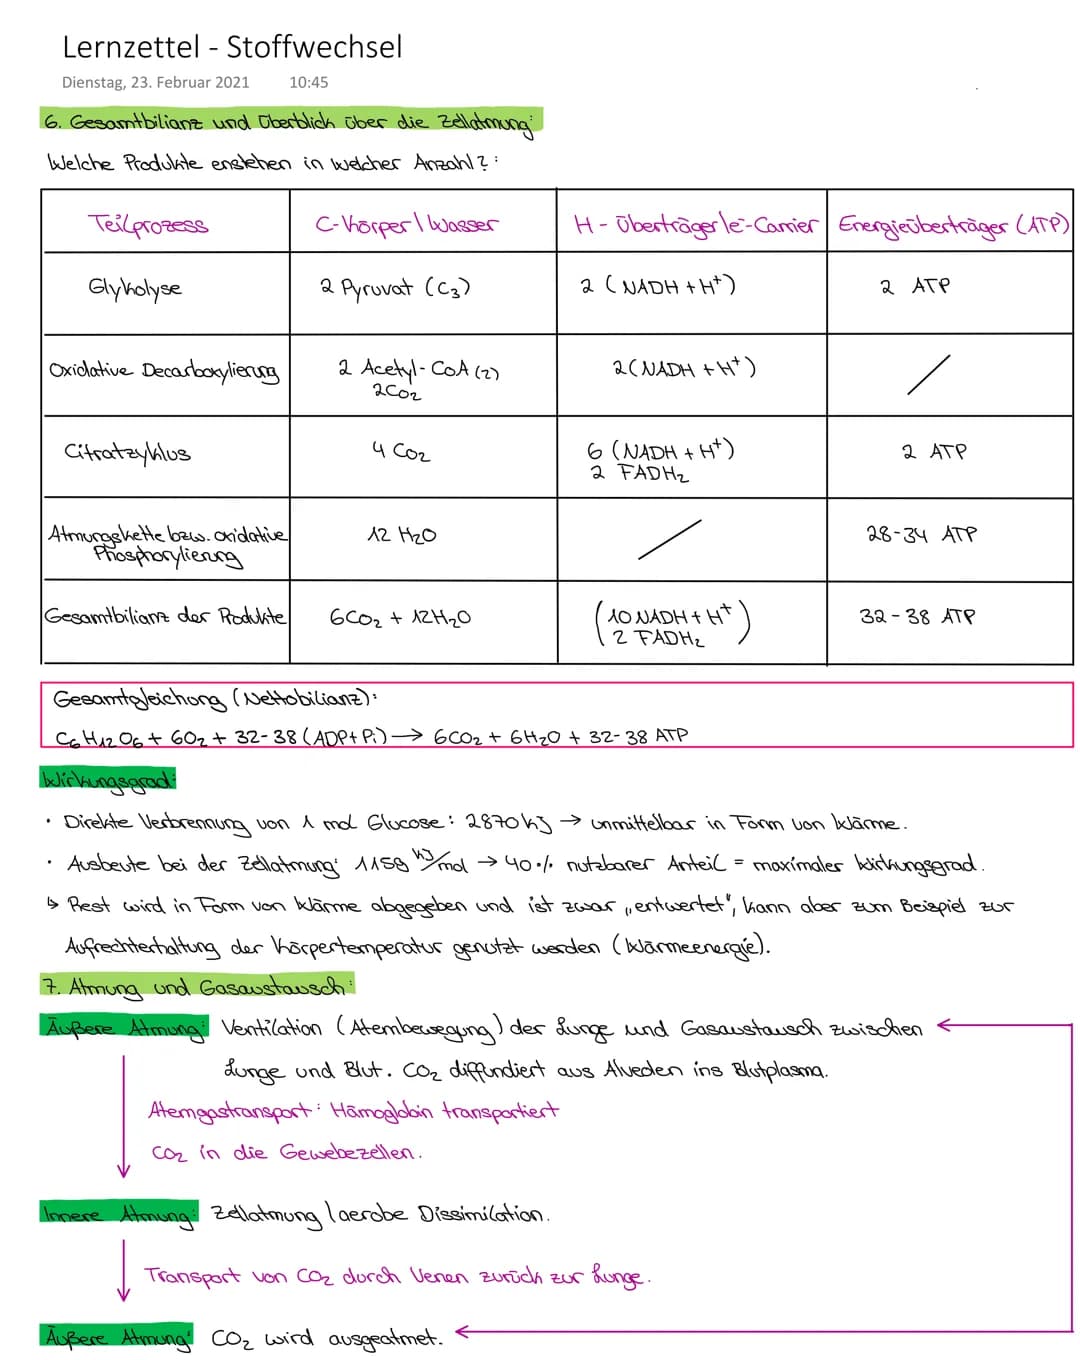 Lernzettel - Stoffwechsel
Dienstag, 23. Februar 2021 10:45
6. Gesamtbilianz und Überblick über die Zellatmung:
Welche Produkte enstehen in welcher Anzahl?:
Teilprozess C-Körper \ Wasser H - Überträger\e⁻-Carrier Energieüberträger (ATP)
Glykolyse 2 Pyruvat (C₃) 2 (NADH + H⁺) 2 ATP
Oxidative Decarboxylierung 2 Acetyl-CoA (2) 2(NADH + H⁺) /
2CO₂
Citratzyklus 4 CO₂ 6 (NADH + H⁺) 2 ATP
2 FADH₂
Atmungskette bzw. oxidative 12 H₂O / 28-34 ATP
Phosphorylierung
Gesamtbilianz der Produkte 6CO₂ + 12H₂O (10 NADH + H⁺ 32 - 38 ATP
2 FADH₂)
Gesamtgleichung (Nettobilianz):
C₆H₁₂O₆ + 6O₂ + 32-38 (ADP+Pi) → 6CO₂ + 6H₂O + 32-38 ATP
Wirkungsgrad:
• Direkte Verbrennung von 1 mol Glucose: 2870kJ → unmittelbar in Form von Wärme.
• Ausbeute bei der Zellatmung: 1158 kJ/mol → 40% nutzbarer Anteil = maximaler Wirkungsgrad.
↳ Rest wird in Form von Wärme abgegeben und ist zwar „entwertet", kann aber zum Beispiel zur
Aufrechterhaltung der Körpertemperatur genutzt werden (Wärmeenergie).
7. Atmung und Gasaustausch:
Äußere Atmung: Ventilation (Atembewegung) der Lunge und Gasaustausch zwischen
Lunge und Blut. CO₂ diffundiert aus Alveolen ins Blutplasma.
Atemgastransport: Hämoglobin transportiert
CO₂ in die Gewebezellen.
Innere Atmung: Zellatmung \ aerobe Dissimilation.
Transport von CO₂ durch Venen zurück zur Lunge.
Äußere Atmung: CO₂ wird ausgeatmet.